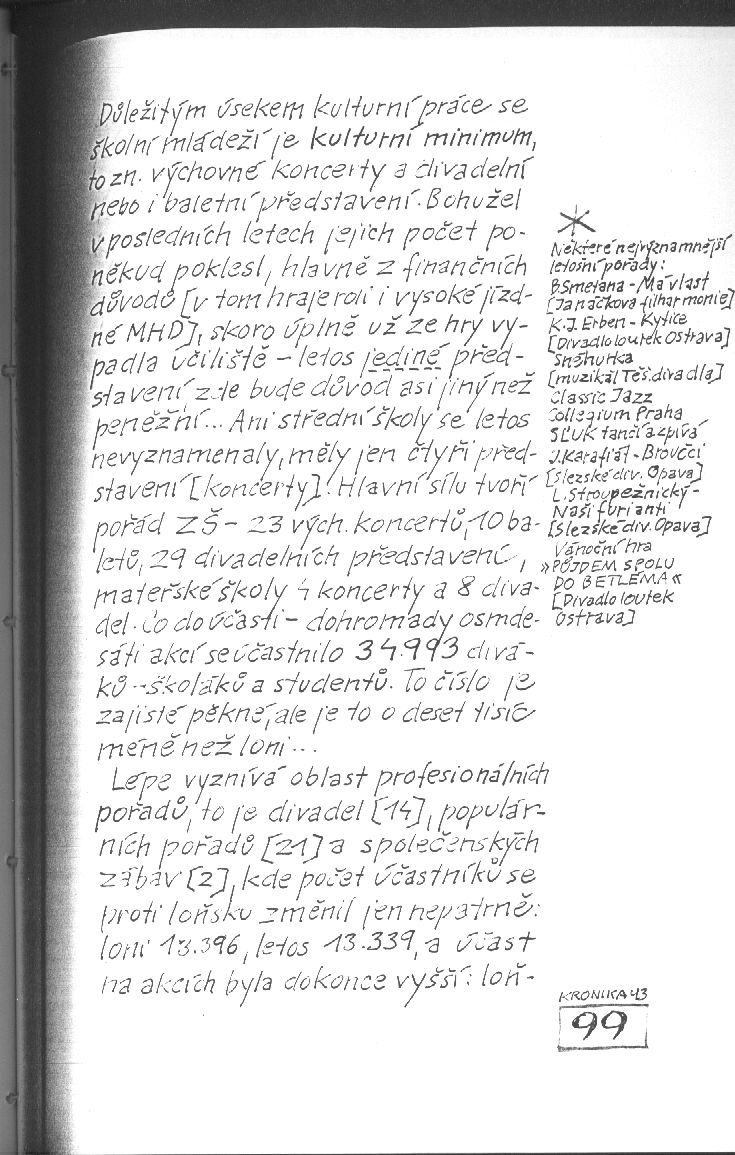 Důležitým úsekem kulturní práce se
školní mládeží je kulturní minimum,
to zn. výchovné koncerty a divadelní
nebo i baletní představení. Bohužel
v posledních letech jejich počet po-
někud poklesl, hlavně z finančních
důvodů [v tom hraje roli i vysoké jízd-
né MHD], skoro úplně už ze hry vy-
padla učiliště – letos jediné před-
stavení, zde bude důvod asi jiný než
peněžní... Ani střední školy se letos
nevyznamenaly, měly jen čtyři před-
stavení [koncerty]. Hlavní sílu tvoří
pořád ZŠ – 23 vých. koncertů, 10 ba-
letů, 29 divadelních představení,
mateřské školy 4 koncerty a 8 diva-
del. Co do účasti – dohromady osmde-
sáti akcí se účastnilo 34.993 divá-
ků – školáků a studentů. To číslo je
zajisté pěkné, ale je to o deset tisíc
méně než loni...
Lépe vyznívá oblast profesionálních
pořadů, to je divadel [14], populár-
ních pořadů [21] a společenských
zábav [2], kde počet účastníků se
proti loňsku změnil jen nepatrně:
loni 13.396, letos 13.339, a účast
na akcích byla dokonce vyšší: loň-
*
Některé nejvýznamnější
letošní pořady:
B.Smetana - Má vlast
[Janáčkova filharmonie]
K.J. Erben - Kytice
[Divadlo loutek Ostrava]
Sněhurka
[muzikál Těš. divadla]
Classic Jazz
Collegium Praha
SĽUK tančí a zpívá
J.Karafiát - Broučci
[Slezské div. Opava]
L.Stroupežnický -
Naši furianti
[Slezské div. Opava]
Vánoční hra
»PŮJDEM SPOLU
DO BETLÉMA«
[Divadlo loutek
Ostrava]
KRONIKA 43
99